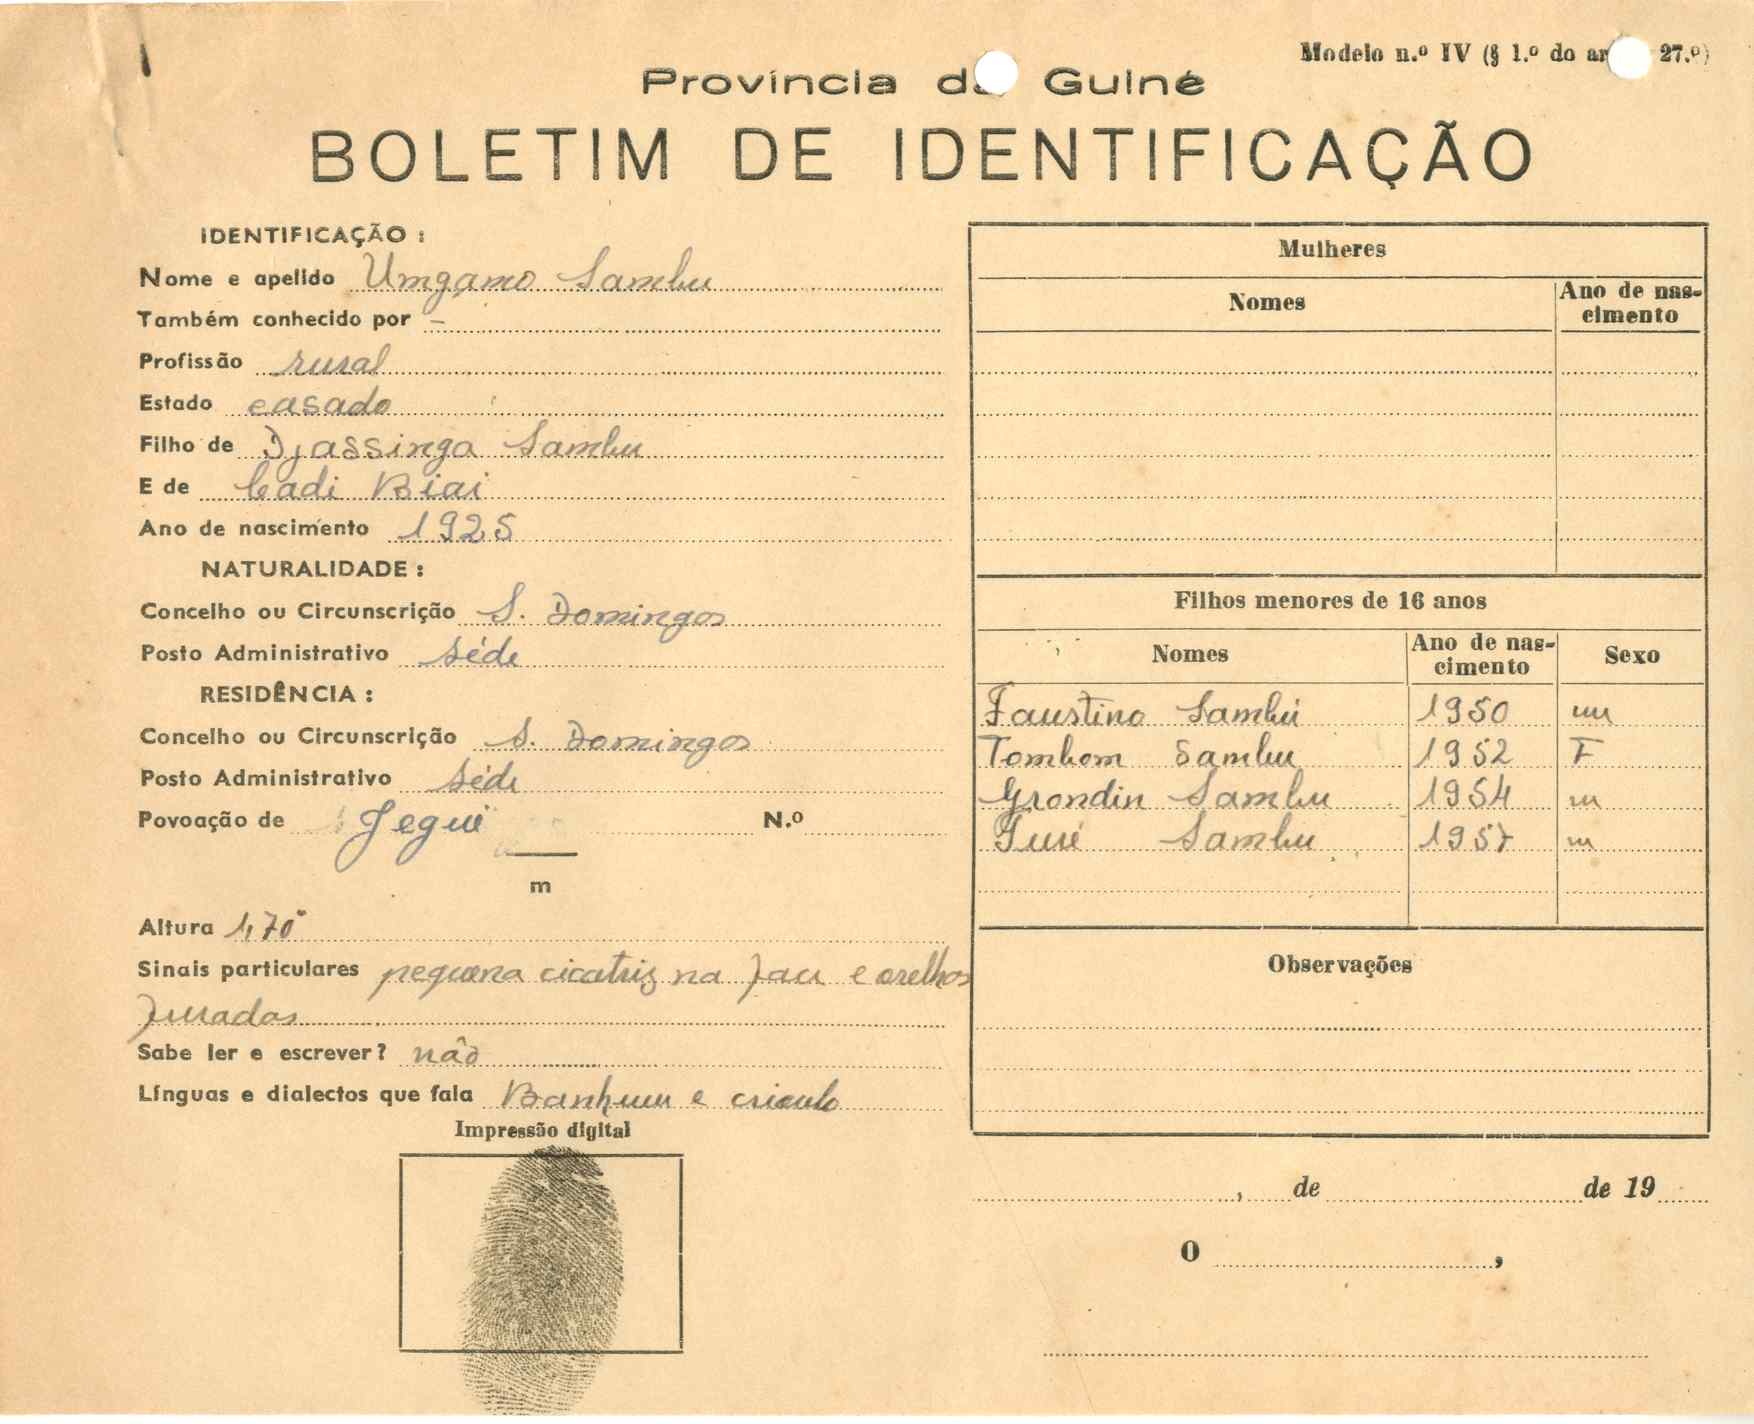 Modelo n.º IV (§ 1.º do ar 27.º)
Província d Guiné
BOLETIM DE IDENTIFICAÇÃO
IDENTIFICAÇÃO :
Nome e apelido Umgamo Sambu
Também conhecido por -
Profissão rural
Estado casado
Filho de Djassinga Sambu
E de Cadi Biai
Ano de nascimento 1925
NATURALIDADE :
Concelho ou Circunscrição S. Domingos
Posto Administrativo Séde
RESIDÊNCIA :
Concelho ou Circunscrição S. Domingos
Posto Administrativo Séde
Povoação de Jegui N.º
m
Altura 1,70
Sinais particulares pequena cicatriz na face e orelhas
furadas
Sabe ler e escrever? não
Línguas e dialectos que fala Banhum e crioulo
Impressão digital
Mulheres
Nomes
Ano de nas-
cimento
Filhos menores de 16 anos
Nomes
Ano de nas-
cimento
Sexo
Faustino Sambú 1950 m
Tombom Sambu 1952 F
Grondin Sambu 1954 m
Sambu 1957 m
Observações
, de de 19
O ,